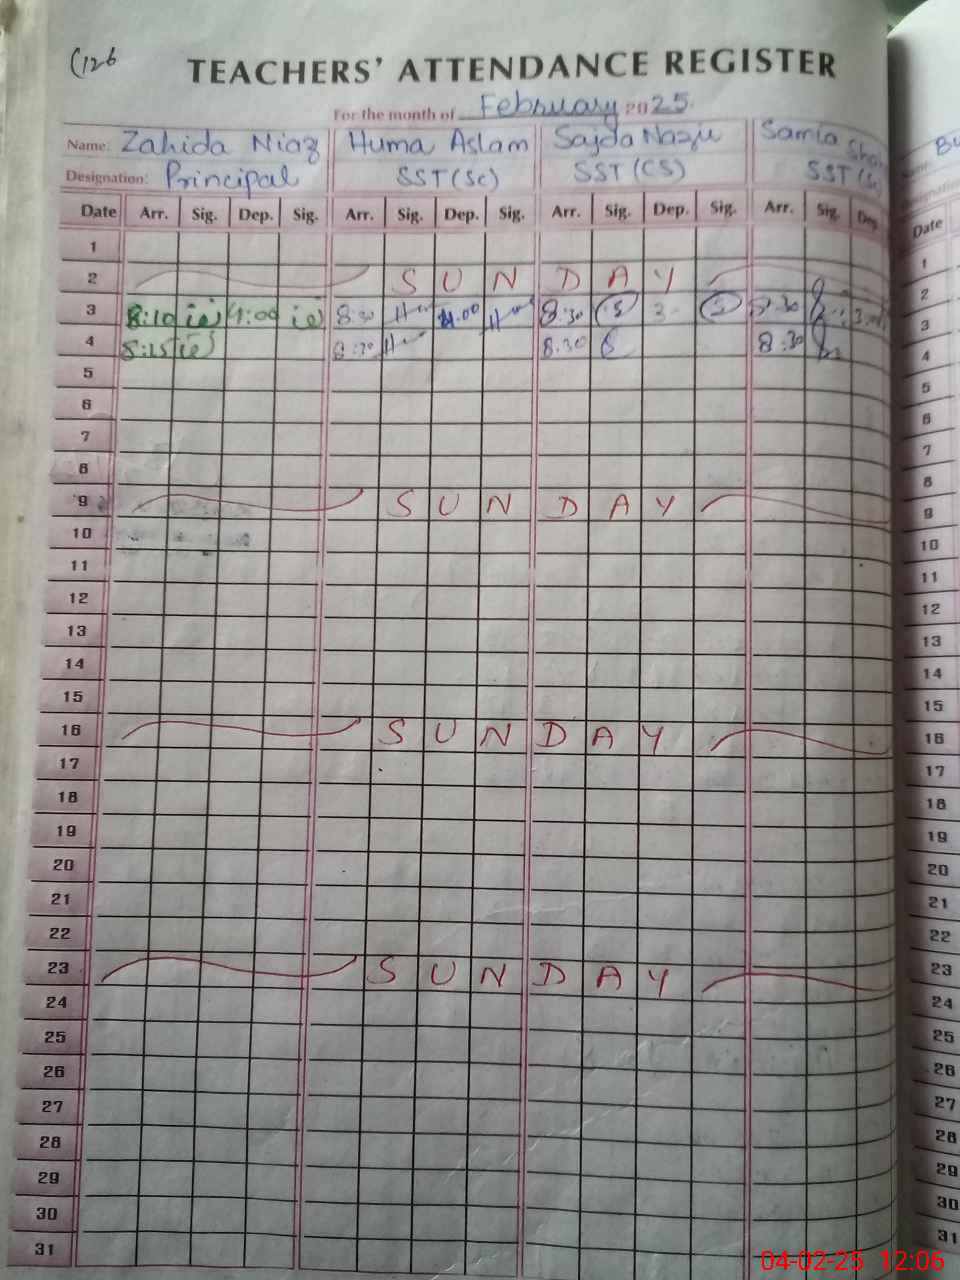 (126
TEACHERS' ATTENDANCE REGISTER
For the month of February 2025.
Name: Zahida Niaz Huma Aslam Sajda Nazir Samia
Designation: Principal SST (Sc) SST (CS) SST (Sc
Date Arr. Sig. Dep. Sig. Arr. Sig. Dep. Sig. Arr. Sig. Dep. Sig. Arr. Sig. Dep. Date
1 1
2 SUNDAY 2
3 8:10 4:00 8:30 4:00 8:30 3:00 3
4 8:15 8:30 8.30 8:30 4
5 5
6 6
7 7
8 8
9 SUNDAY 9
10 10
11 11
12 12
13 13
14 14
15 15
16 SUNDAY 16
17 17
18 18
19 19
20 20
21 21
22 22
23 SUNDAY 23
24 24
25 25
26 26
27 27
28 28
29 29
30 30
31 31
04-02-25 12:06